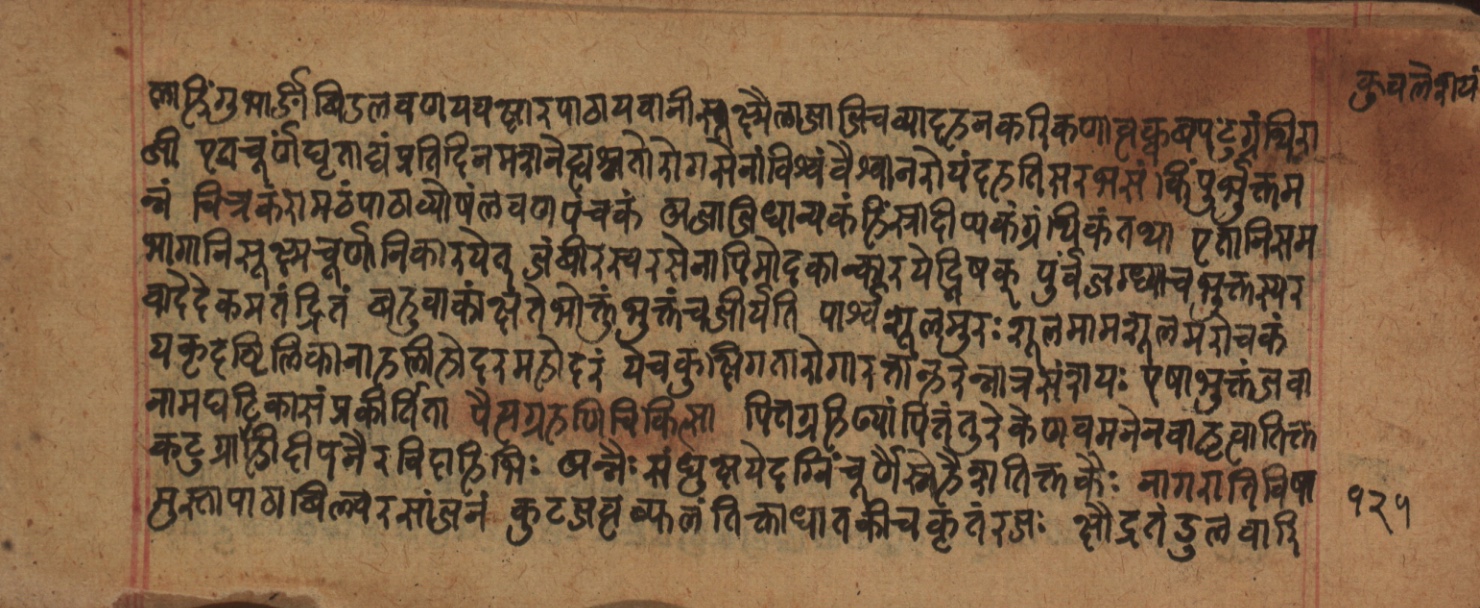 कुवलेशयं
त्नाहिंगुभार्ङी विडलवणयवक्षारपाठायवानीसूक्ष्मैलाजाजिचव्यादहनकरिकणावृक्षपटुग्रंथिरा
जी एतच्चूर्णंघृताढ्यंप्रतिदिनमशनेह्यश्नतोरोगसेनांविश्वंवैश्वानरोयंदहतिसरभसं किंपुनर्भुक्तम
न्नं चित्रकंरामठंपाठाव्योषंलवणपंचकं अजाजिधान्यकंहिंस्रादीप्यकंग्रंथिकंतथा एतानिसम
भागानिसूक्ष्मचूर्णानिकारयेत् जंबीरस्वरसेनापिमोदकान्कारयेद्भिषक् पुर्वंजग्ध्वाचभुक्तस्यर
वादेदेकमतंद्रितं बहुवाकांक्षतेभोक्तुंभुक्तंचजीर्यति पार्श्वशूलमुरःशूलमामशूलमरोचकं
यकृदष्ठिलिकानाहप्लीहोदरमहोदरं येचकुक्षिगतारोगारतान्हरेन्नात्रसंशयः एषाभुक्तंजवा
नामघटिकासंप्रकीर्तिता पैसग्रहणिचिकित्सा पित्तग्रहण्यांपित्तंतुरेकेणवमनेनवाहृत्वातिक्त
कटुग्राहिदीपनैरविदाहिभिः अन्नैःसंधुक्षयेदग्निंचूर्णैस्नेहैश्चातिक्तकैः नागरातिविषा
मुस्तापाठाबिल्वरसांजनं कुटजत्वक्फलंतिक्ताधातकीचकृतंरजः क्षौद्रतंडुलवारि
१२५